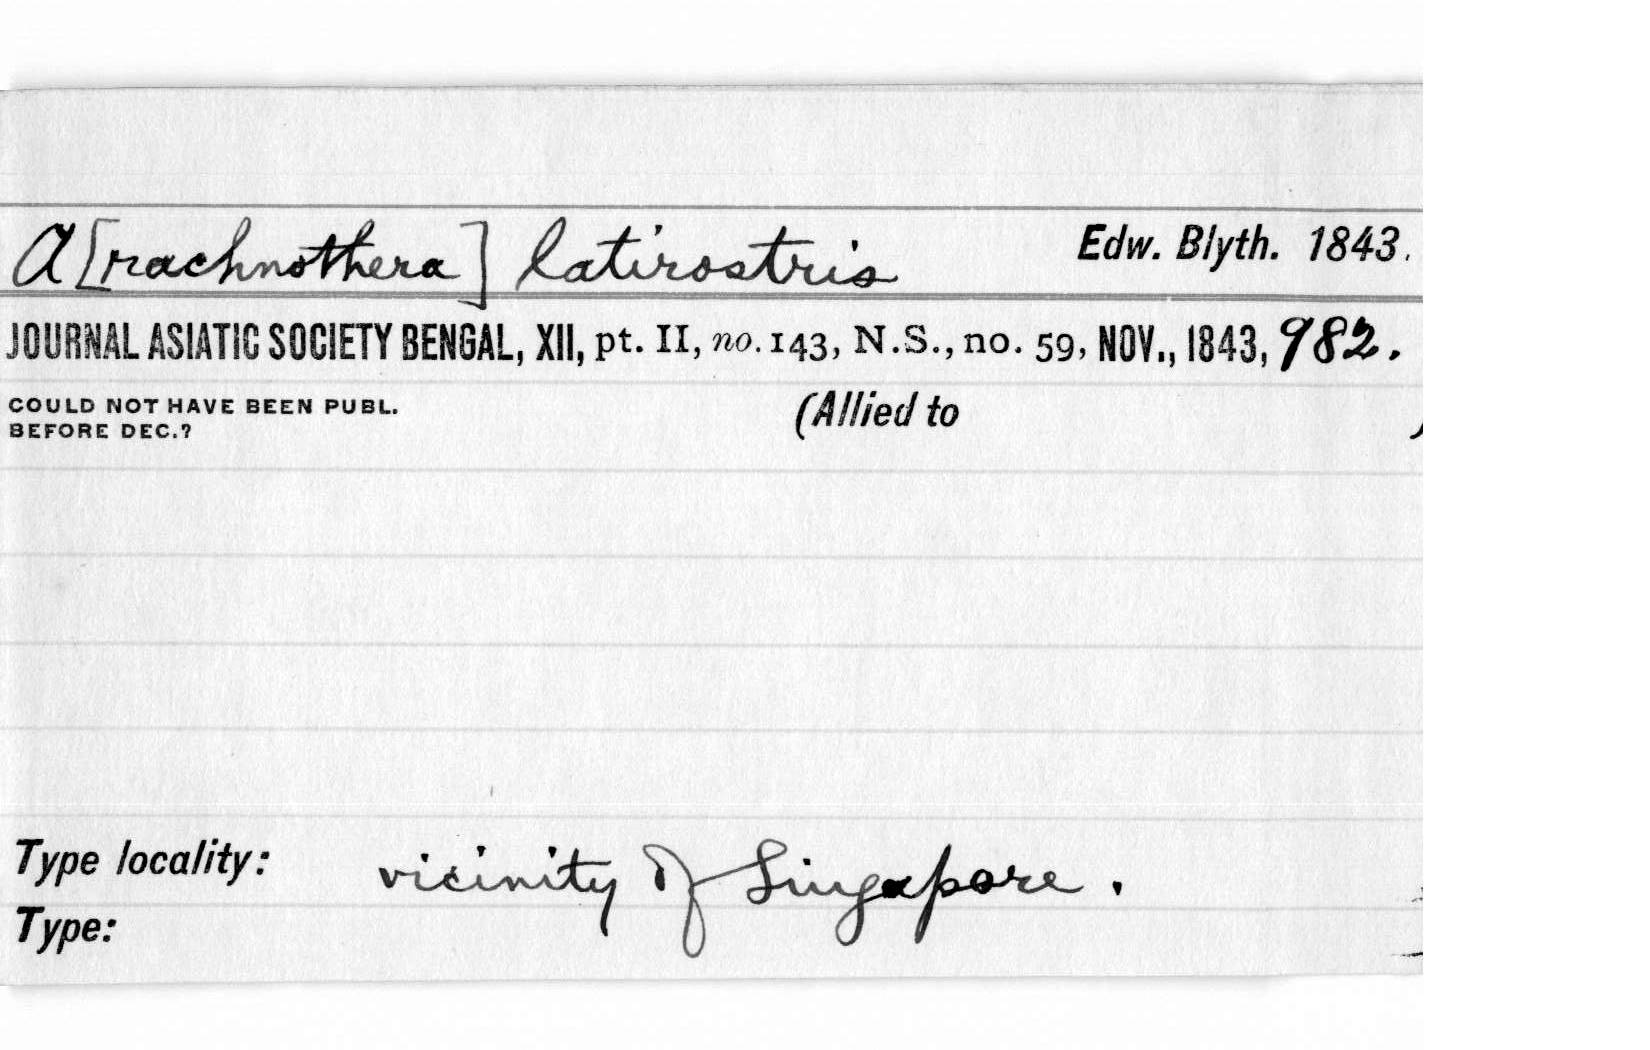 A[rachnothera] latirostris Edw. Blyth. 1843.
JOURNAL ASIATIC SOCIETY BENGAL, XII, pt. II, no. 143, N.S., no. 59, NOV., 1843, 982.
COULD NOT HAVE BEEN PUBL. (Allied to )
BEFORE DEC.?
Type locality: vicinity of Singapore.
Type: